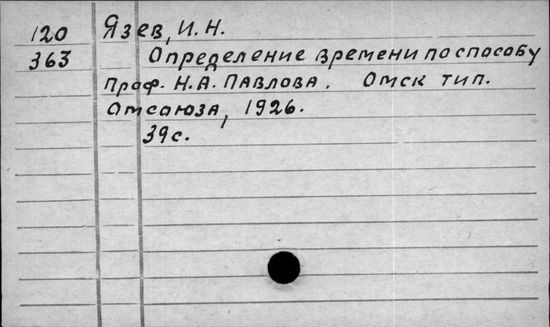 120 Язев, И. Н.
363 Определение времени по способу
Проф. Н. А. Павлова. Омск тип.
Омсоюза, 1926.
39 с.